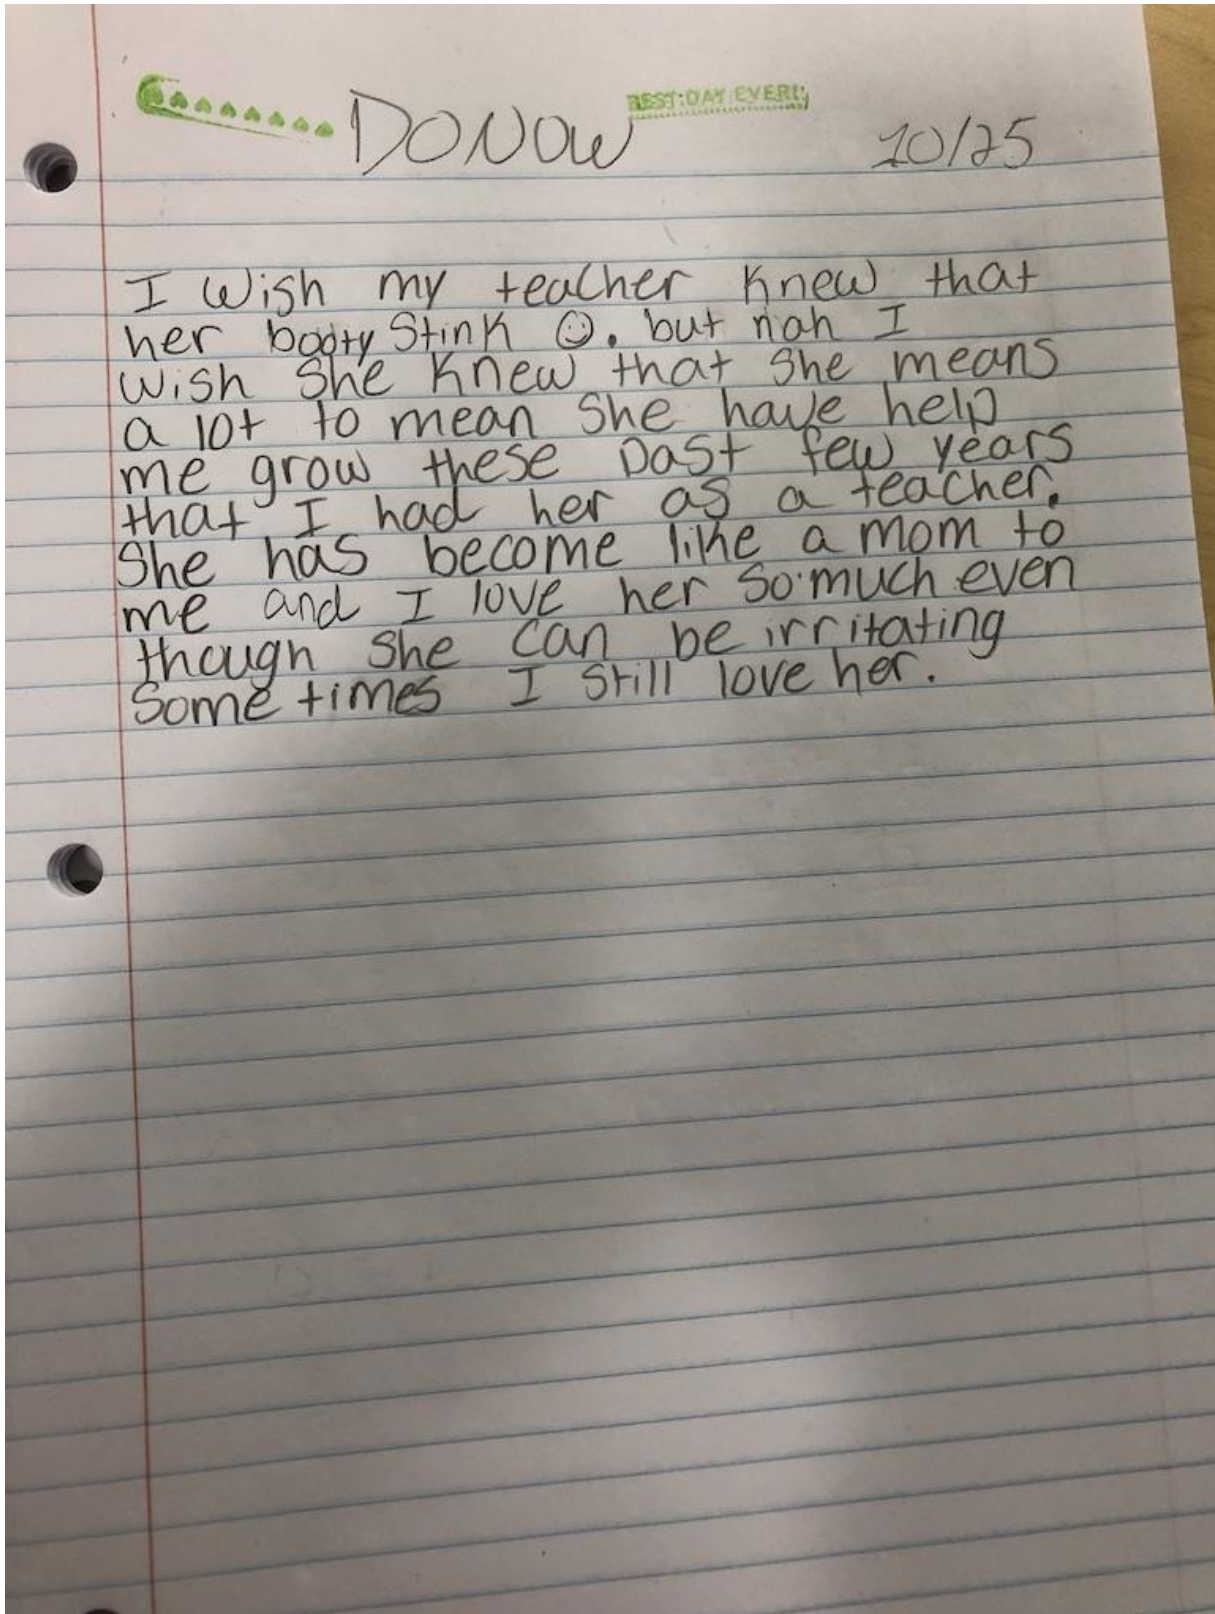 DONOW
BEST DAY EVER!
10/25
I Wish my teacher knew that
her booty Stink ☺. but nah I
wish she knew that she means
a lot to mean She have help
me grow these past few years
that I had her as a teacher.
She has become like a mom to
me and I love her so much even
though she can be irritating
Some times I Still love her.